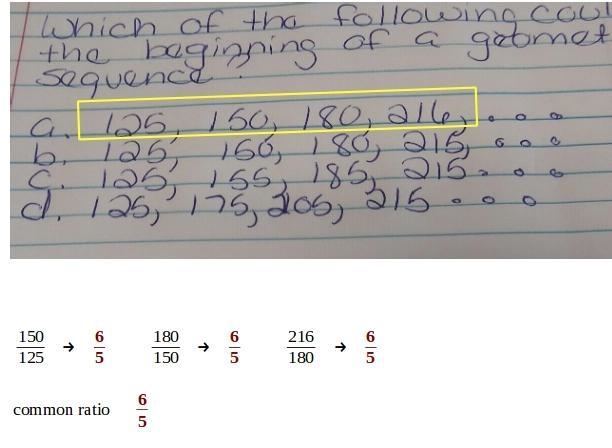 Which of the following coul
the beginning of a geomet
sequence?
a. 125, 150, 180, 216, . . .
b. 125, 150, 180, 215, . . .
c. 125, 155, 185, 215. . .
d. 125, 175, 205, 215 . . .
150/125 → 6/5 180/150 → 6/5 216/180 → 6/5
common ratio 6/5